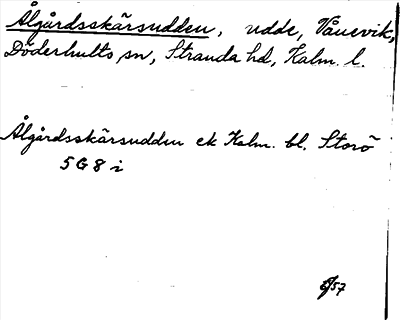 Ålgårdsskärsudden, udde, Vånevik,
Döderhults sn, Stranda hd, Kalm. l.
Ålgårdsskärsudden ek Kalm. bl. Storö
5 G 8 i
/57